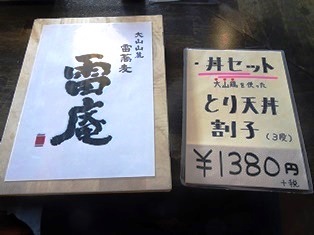 大山山麓
雷蕎麦
雷庵
・丼セット
大山鶏を使った
とり天丼
割子(3段)
¥1380円
+税